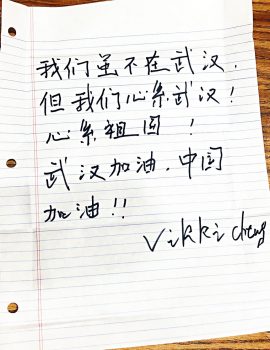 我们虽不在武汉.
但我们心系武汉!
心系祖国!
武汉加油.中国
加油!!
Vikki cheng